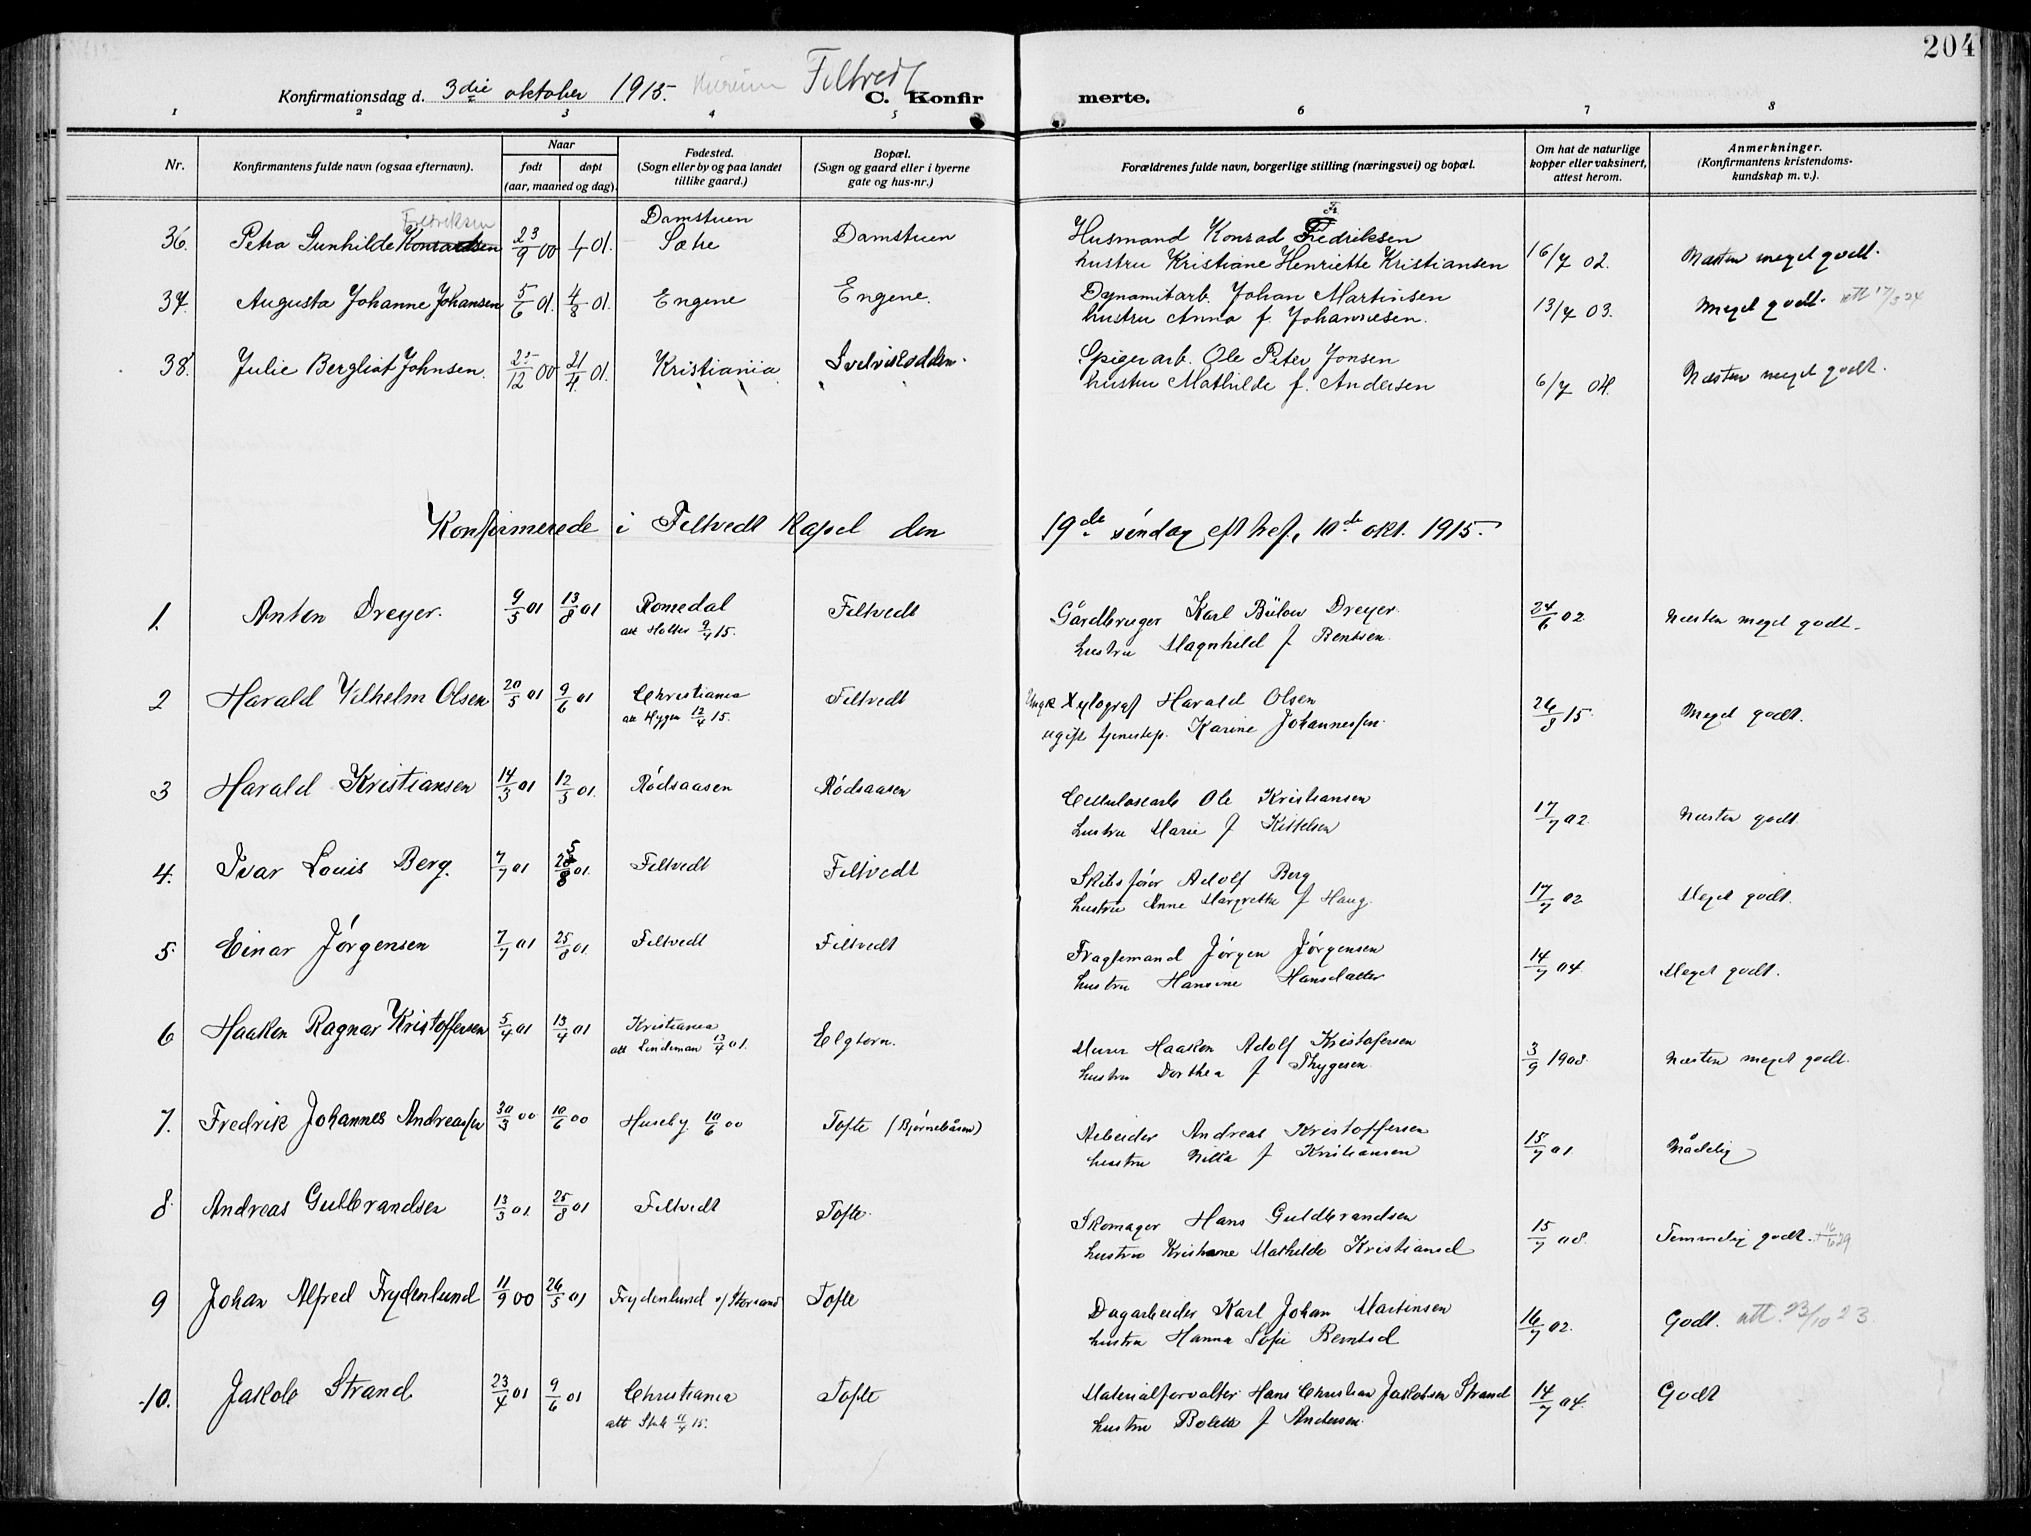 204
Konfirmationsdag d. 3die oktober 1915. Hurum Filtvedt
C. Konfir merte.
1 2 3 4 5 6 7 8
Nr. Konfirmantens fulde navn (ogsaa efternavn). Naar født døpt (aar, maaned og dag). Fødested. (Sogn eller by og paa landet tillike gaard.) Bopæl. (Sogn og gaard eller i byerne gate og hus-nr.) Forældrenes fulde navn, borgerlige stilling (næringsvei) og bopæl. Om hat de naturlige kopper eller vaksinert, attest herom. Anmerkninger. (Konfirmantens kristendoms-kundskap m. v.).
Fredriksen Damstuen
36. Petra Gunhilde Konradsen 23/9 00 1/4 01. Sætre Damstuen Husmand Konrad Fredriksen 16/7 02. Næsten meget godt.
hustru Kristiane Henriette Kristiansen
37. Augusta Johanne Johansen 5/6 01. 4/8 01. Engene Engene. Dynamitarb. Johan Martinsen 13/7 03. Meget godt. att 17/3 24
hustru Anna f. Johannesen.
38. Julie Bergliot Johnsen. 25/12 00 21/4 01. Kristiania Svelvikodden. Spigerarb. Ole Peter Jonsen 6/7 04. Næsten meget godt.
hustru Mathilde f. Andersen
Konfirmerede i Filtvedt Kapel den 19de søndag eft tref, 10de okt. 1915.
1. Anton Dreyer. 9/5 01 13/8 01 Romedal Filtvedt Gårdbruger Karl Bülow Dreyer 24/6 02 Næsten meget godt.
att Holter 9/4 15. hustru Magnhild f Bentsen.
2 Harald Vilhelm Olsen 20/5 01 9/6 01 Christiania Filtvedt Ungk Xylograf Harald Olsen 26/8 15. Meget godt.
att Hygen 12/4 15. ugift tjenestep. Karine Johannessen.
3 Harald Kristiansen 14/3 01 12/5 01. Rødsaasen Rødsaasen Cellulosearb Ole Kristiansen 17/7 02. Næsten godt.
hustru Marie f Kittelsen
4. Ivar Louis Berg. 7/7 01 25/8 01. Filtvedt Filtvedt Skibsfører Adolf Berg 17/7 02 Meget godt.
hustru Anne Margrethe f Haug.
5. Einar Jørgensen 7/7 01 25/8 01. Filtvedt Filtvedt Fragtemand Jørgen Jørgensen 14/7 04. Meget godt.
hustru Hansine Hansdatter
6 Haakon Ragnar Kristoffersen 5/4 01 13/4 01 Kristiania Elgtorn. Murer Haakon Adolf Kristofersen 3/9 1908. Næsten meget godt.
att Lindeman 13/4 01. hustru Dorthea f Thygesen.
7. Fredrik Johannes Andreassen 30/3 00 10/6 00 Huseby 10/6 00 Tofte (Bjørnebåsen) Arbeider Andreas Kristoffersen 15/7 01. Mådelig
hustru Nikka f Kristiansen
8. Andreas Gulbrandsen 13/3 01. 25/8 01 Filtvedt Tofte. Skomager Hans Guldbrandsen 15/7 08. Temmelig godt. + 16/6 29
hustru Kristine Mathilde Kristiansd
9 Johan Alfred Frydenlund 11/9 00 26/5 01 Frydenlund v/ Storsand Tofte Dagarbeider Karl Johan Martinsen 16/7 02. Godt. att. 23/10 23.
hustru Hanna Sofie Berntsd
10. Jakob Strand 23/4 01 9/6 01 Christiania Tofte Materialforvalter Hans Christian Jakobsen Strand 14/7 04. Godt
att 11/4 15. hustru Bolette f Andersen.